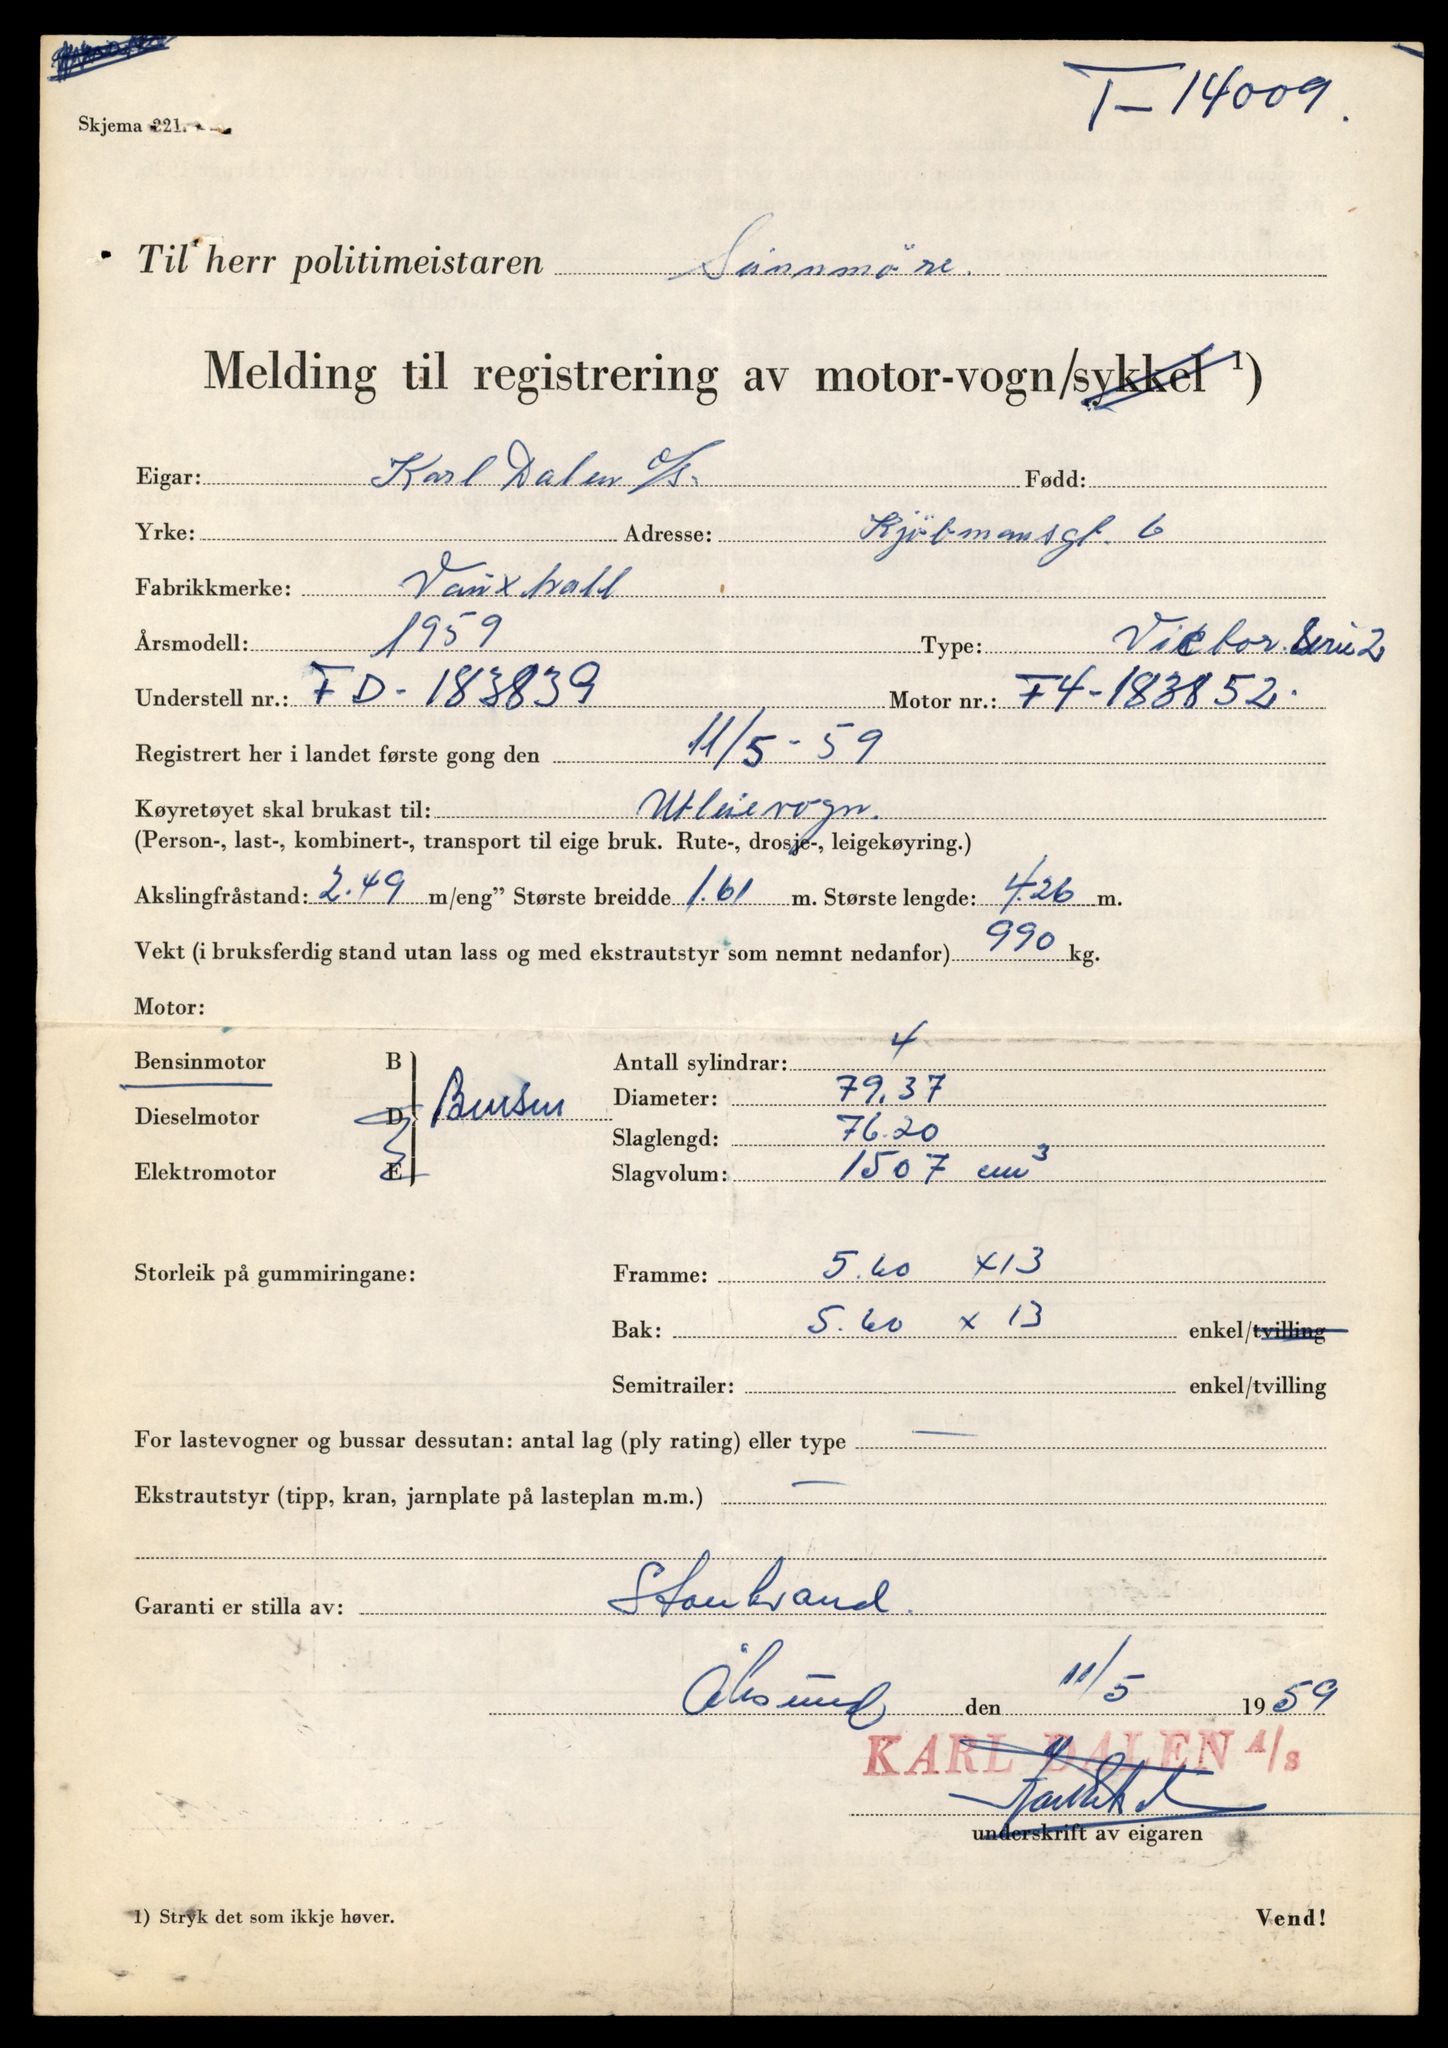 T-14009.
Skjema 221.
Til herr politimeistaren Sunnmöre.
Melding til registrering av motor-vogn/sykkel 1)
Eigar: Karl Dalen a/s. Fødd:
Yrke: Adresse: Kjöbmansgt. 6
Fabrikkmerke: Vauxhall
Årsmodell: 1959 Type: Victor. Serie 2
Understell nr.: FD-183839 Motor nr.: F4-183852.
Registrert her i landet første gong den 11/5-59
Køyretøyet skal brukast til: Utleievogn.
(Person-, last-, kombinert-, transport til eige bruk. Rute-, drosje-, leigekøyring.)
Akslingfråstand: 2.49 m/eng” Største breidde 1.61 m. Største lengde: 4.26 m.
Vekt (i bruksferdig stand utan lass og med ekstrautstyr som nemnt nedanfor) 990 kg.
Motor:
Bensinmotor B Antall sylindrar: 4
Diameter: 79.37
Dieselmotor D Bensin
Slaglengd: 76.20
Elektromotor E Slagvolum: 1507 cm3
Storleik på gummiringane: Framme: 5.60 x13
Bak: 5.60 x 13 enkel/tvilling
Semitrailer: enkel/tvilling
For lastevogner og bussar dessutan: antal lag (ply rating) eller type —
Ekstrautstyr (tipp, kran, jarnplate på lasteplan m.m.) —
Garanti er stilla av: Storebrand.
Ålesund den 11/5 1959
KARL DALEN A/S
underskrift av eigaren
1) Stryk det som ikkje høver.
Vend!